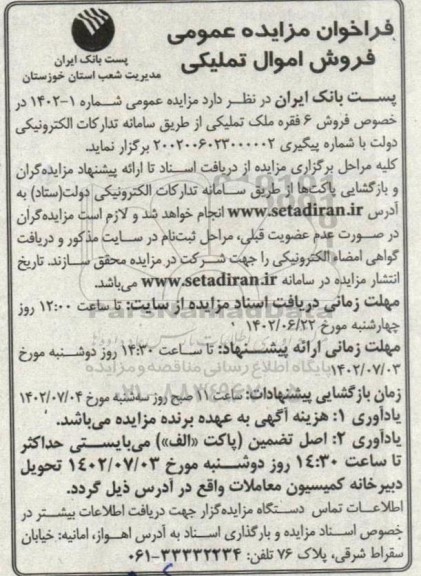 فراخوان مزایده عمومی
فروش اموال تملیکی
پست بانک ایران
مدیریت شعب استان خوزستان
پست بانک ایران در نظر دارد مزایده عمومی شماره ۱-۱۴۰۲ در
خصوص فروش ۶ فقره ملک تملیکی از طریق سامانه تدارکات الکترونیکی
دولت با شماره پیگیری ۲۰۰۲۰۰۶۰۲۳۰۰۰۰۰۲ برگزار نماید.
کلیه مراحل برگزاری مزایده از دریافت اسناد تا ارائه پیشنهاد مزایده‌گران
و بازگشایی پاکت‌ها از طریق سامانه تدارکات الکترونیکی دولت(ستاد) به
آدرس www.setadiran.ir انجام خواهد شد و لازم است مزایده‌گران
در صورت عدم عضویت قبلی، مراحل ثبت‌نام در سایت مذکور و دریافت
گواهی امضاء الکترونیکی را جهت شرکت در مزایده محقق سازند. تاریخ
انتشار مزایده در سامانه www.setadiran.ir می‌باشد.
مهلت زمانی دریافت اسناد مزایده از سایت: تا ساعت ۱۲:۰۰ روز
چهارشنبه مورخ ۱۴۰۲/۰۶/۲۲
مهلت زمانی ارائه پیشنهاد: تا ساعت ۱۴:۳۰ روز دوشنبه مورخ
۱۴۰۲/۰۷/۰۳
زمان بازگشایی پیشنهادات: ساعت ۱۱ صبح روز سه‌شنبه مورخ ۱۴۰۲/۰۷/۰۴
یادآوری ۱: هزینه آگهی به عهده برنده مزایده می‌باشد.
یادآوری ۲: اصل تضمین (پاکت «الف») می‌بایستی حداکثر
تا ساعت ۱۴:۳۰ روز دوشنبه مورخ ۱۴۰۲/۰۷/۰۳ تحویل
دبیرخانه کمیسیون معاملات واقع در آدرس ذیل گردد.
اطلاعات تماس دستگاه مزایده‌گزار جهت دریافت اطلاعات بیشتر در
خصوص اسناد مزایده و بارگذاری اسناد به آدرس اهواز، امانیه: خیابان
سقراط شرقی، پلاک ۷۶ تلفن: ۳۳۳۳۲۲۳۴-۰۶۱